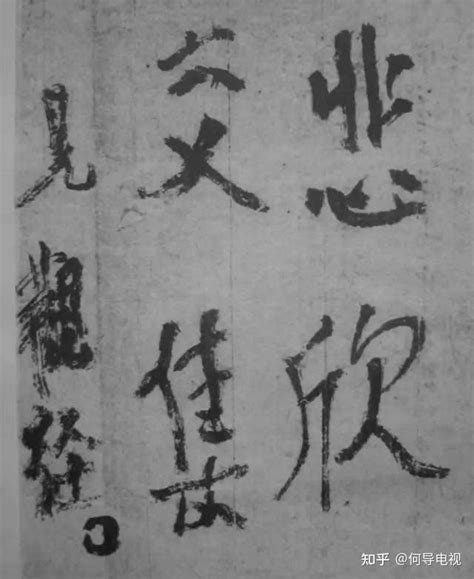 悲欣
交集
見觀經。
知乎 @何导电视